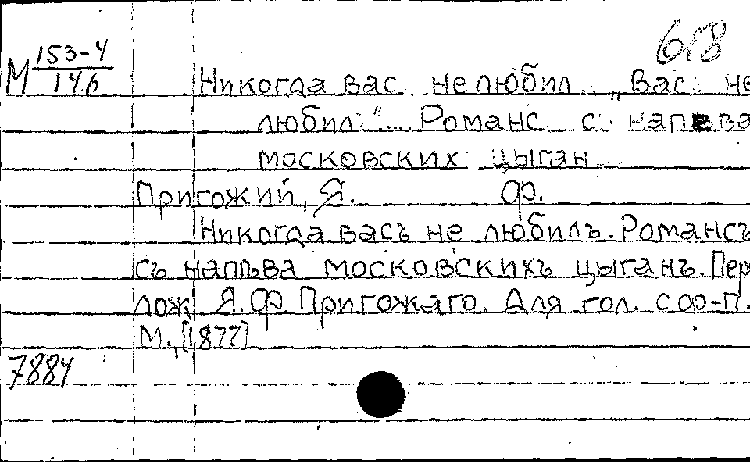 618
М 153-4/146
Никогда вас не любил „Вас не
любил"... Романс с напева
московских цыган
Пригожий, Я. Ф.
Никогда васъ не любилъ. Романсъ
съ напѣва московскихъ цыганъ. Пер
лож. Я. Ф. Пригожаго. Для гол. с фо-п.
М., [1877]
7884